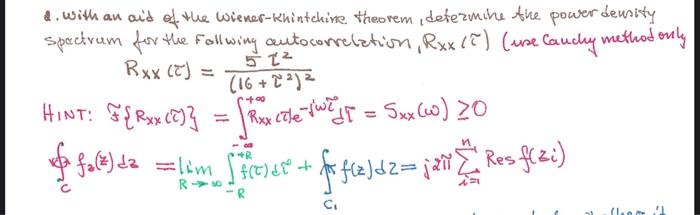 2. with an aid of the Wiener-Khintchine theorem, determine the power density
spectrum for the Follwing autocorrelation, Rxx(τ) (use Cauchy method only
Rxx(τ) = 5τ² / (16 + τ²)²
HINT: F{Rxx(τ)} = ∫_{-∞}^{+∞} Rxx(τ)e^{-jωτ}dτ = Sxx(ω) ≥ 0
∮_C f₂(z)dz = lim_{R→∞} ∫_{-R}^{+R} f(τ)dτ + ∮_{C₁} f(z)dz = j2π Σ_{i=1}^{n} Res f(zi)